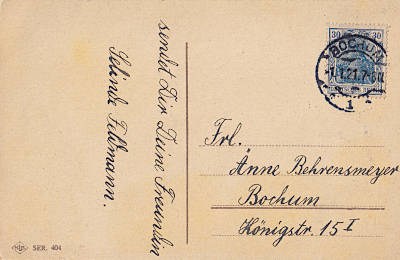 sendet Dir Deine Freundin
Selinde Feldmann.
30 30
BOCHUM
1
Frl.
Änne Behrensmeyer
Bochum
Königstr. 15 I
SER. 404